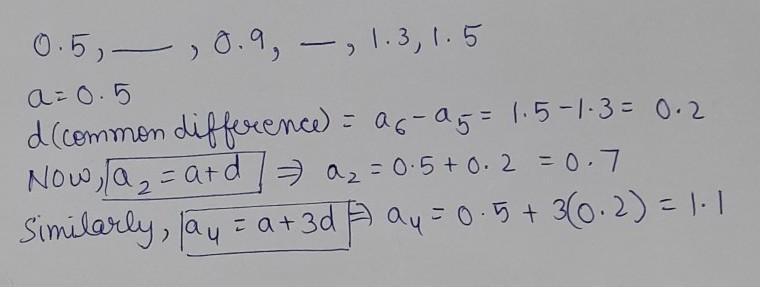 0.5, __ , 0.9, __ , 1.3, 1.5
a = 0.5
d (common difference) = a₆ - a₅ = 1.5 - 1.3 = 0.2
Now, a₂ = a + d ⇒ a₂ = 0.5 + 0.2 = 0.7
Similarly, a₄ = a + 3d ⇒ a₄ = 0.5 + 3(0.2) = 1.1